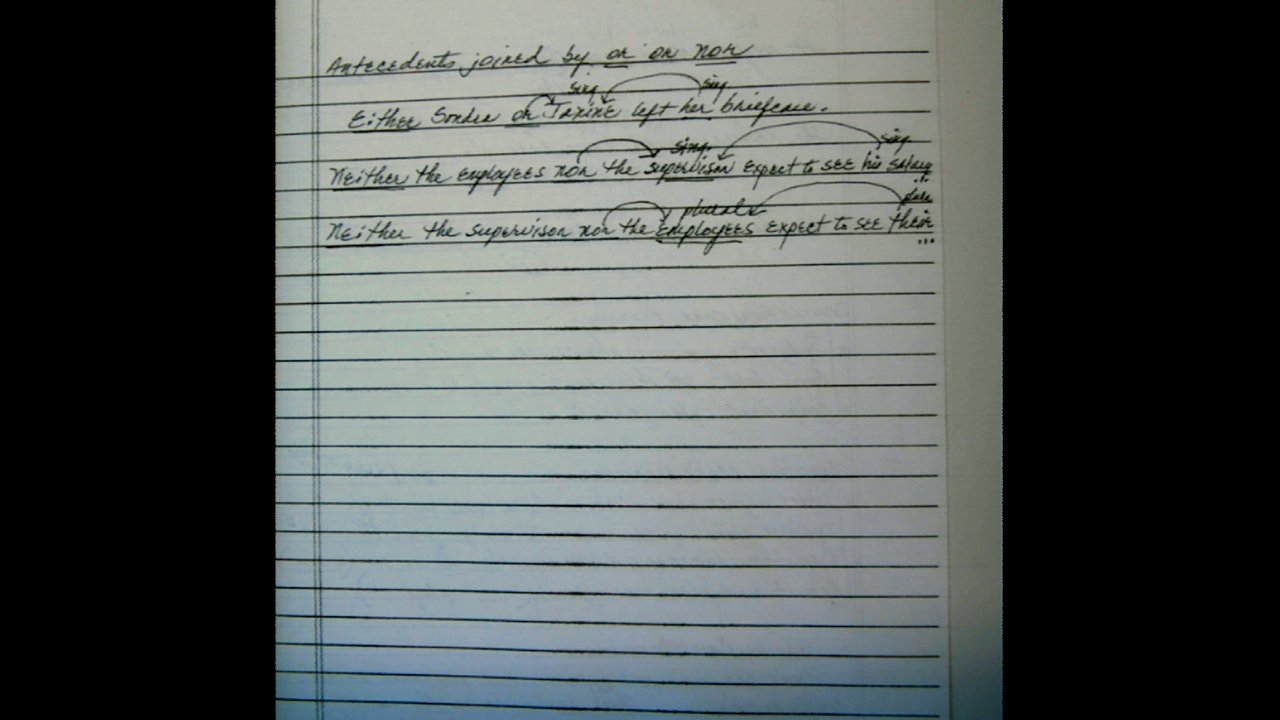 Antecedents joined by or or nor
sing sing
Either Sondra or Janine left her briefcase.
sing. sing.
Neither the employees nor the supervisor expect to see his salary...
plural
Neither the supervisor nor the employees expect to see their...